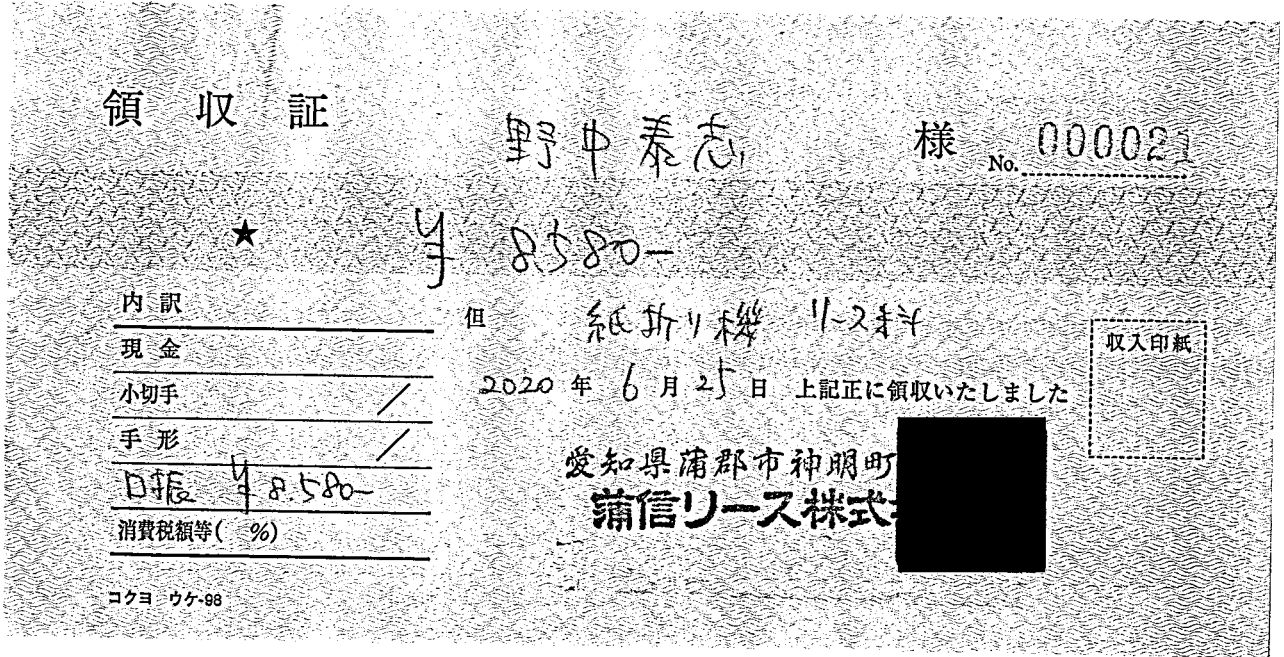 領収証 野中泰志 様 No. 000021
★ ¥ 8,580-
内訳
現金
小切手 /
手形 /
口振 ¥8,580-
消費税額等( %)
コクヨ ウケ-98
但 紙折り機 リース料
2020年 6月25日 上記正に領収いたしました
収入印紙
愛知県蒲郡市神明町
蒲信リース株式